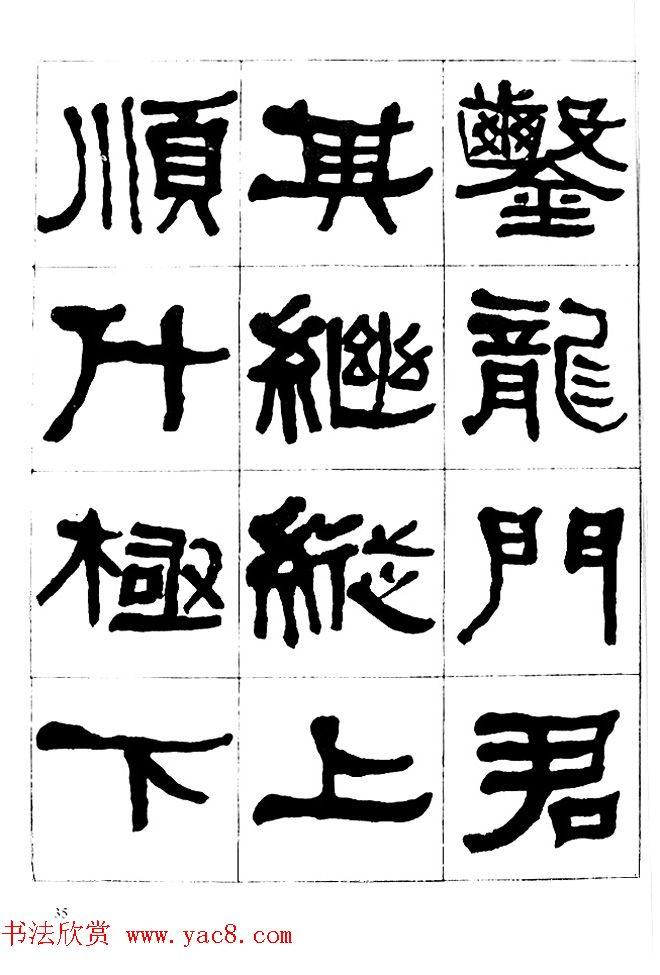 鑿龍門君
其繼縱上
順斗極下
35
书法欣赏 www.yac8.com